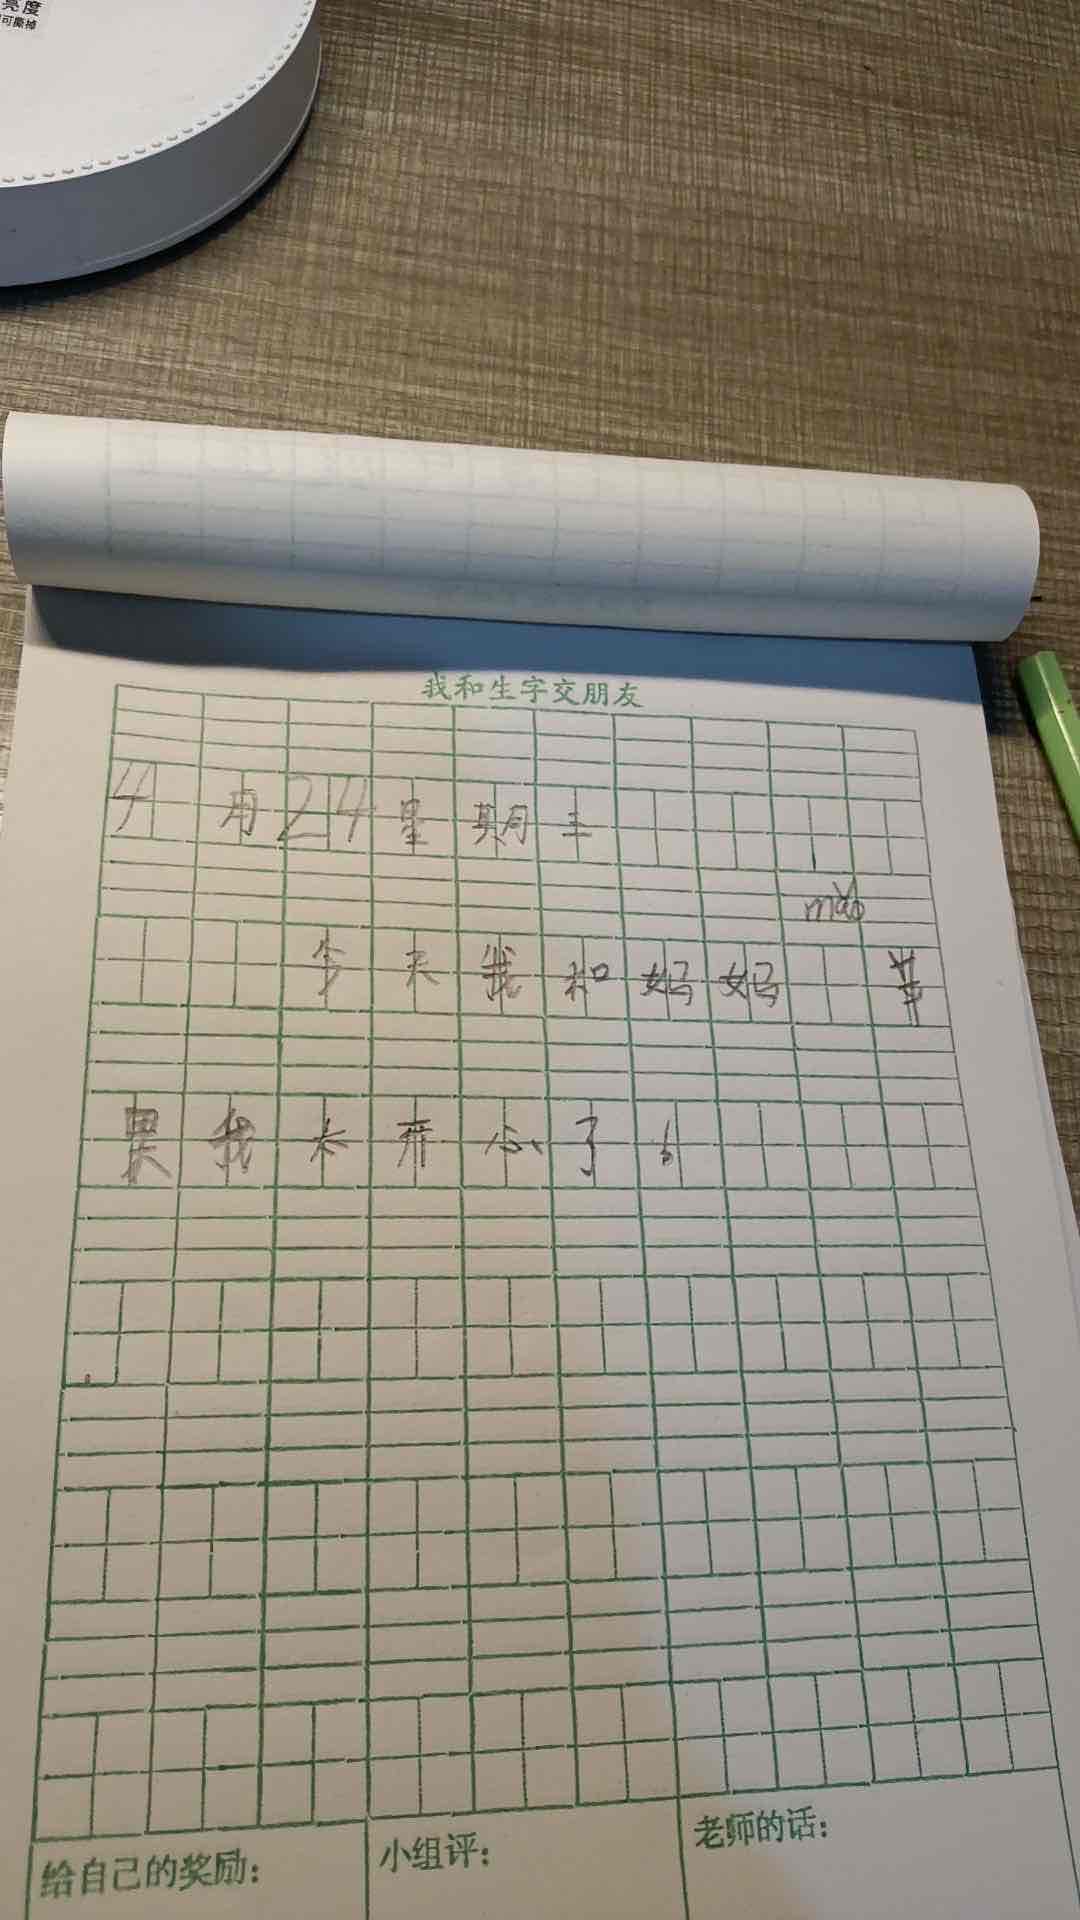 亮度
可撕掉
我和生字交朋友
4月24星期三
mǎo
今天我和妈妈
果我不开心了。
给自己的奖励：
小组评：
老师的话：